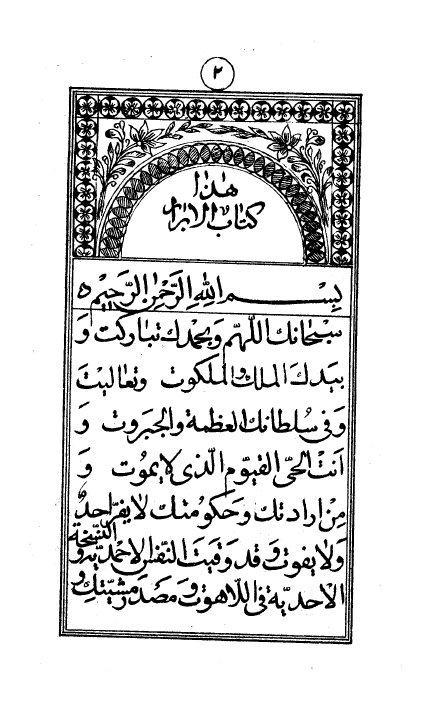 ٢
هذا
كتاب الابرار
بسم الله الرحمن الرحيم ه
سبحانك اللهم وبحمدك تباركت و
بيدك الملك والملكوت وتعاليت
وفى سلطانك العظمة والجبروت و
انت الحى القيوم الذى لا يموت و
من ارادتك وحكومتك لا يفر احد
ولا يفوت وقد وقيت النفس الاحمدية و النسخة
الاحدية فى اللاهوت ومصدر مشيتك و